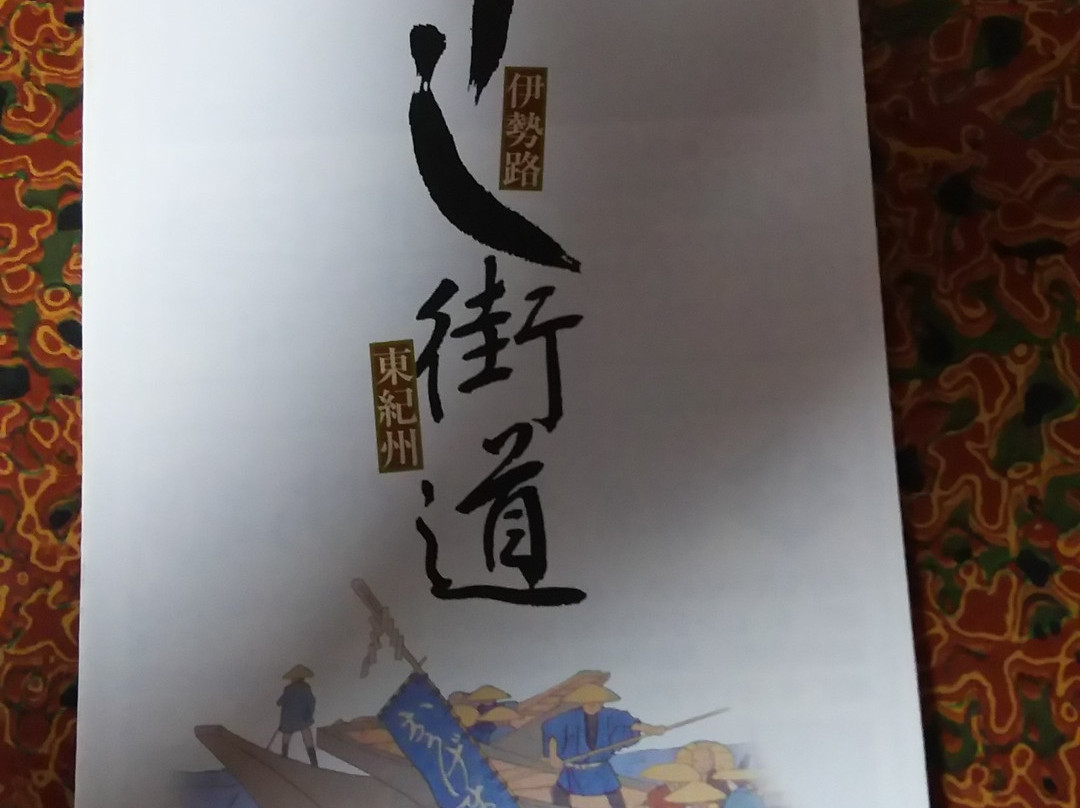 伊勢路
し街道
東紀州